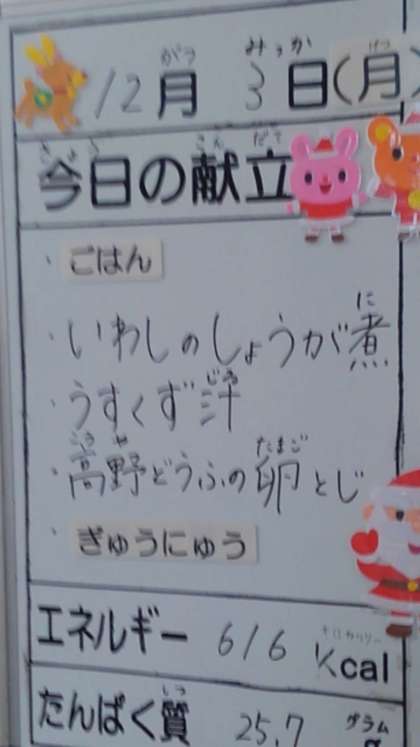 12月3日(月)
今日の献立
・ごはん
・いわしのしょうが煮
・うすくず汁
・高野どうふの卵とじ
・ぎゅうにゅう
エネルギー 616 Kcal
たんぱく質 25.7